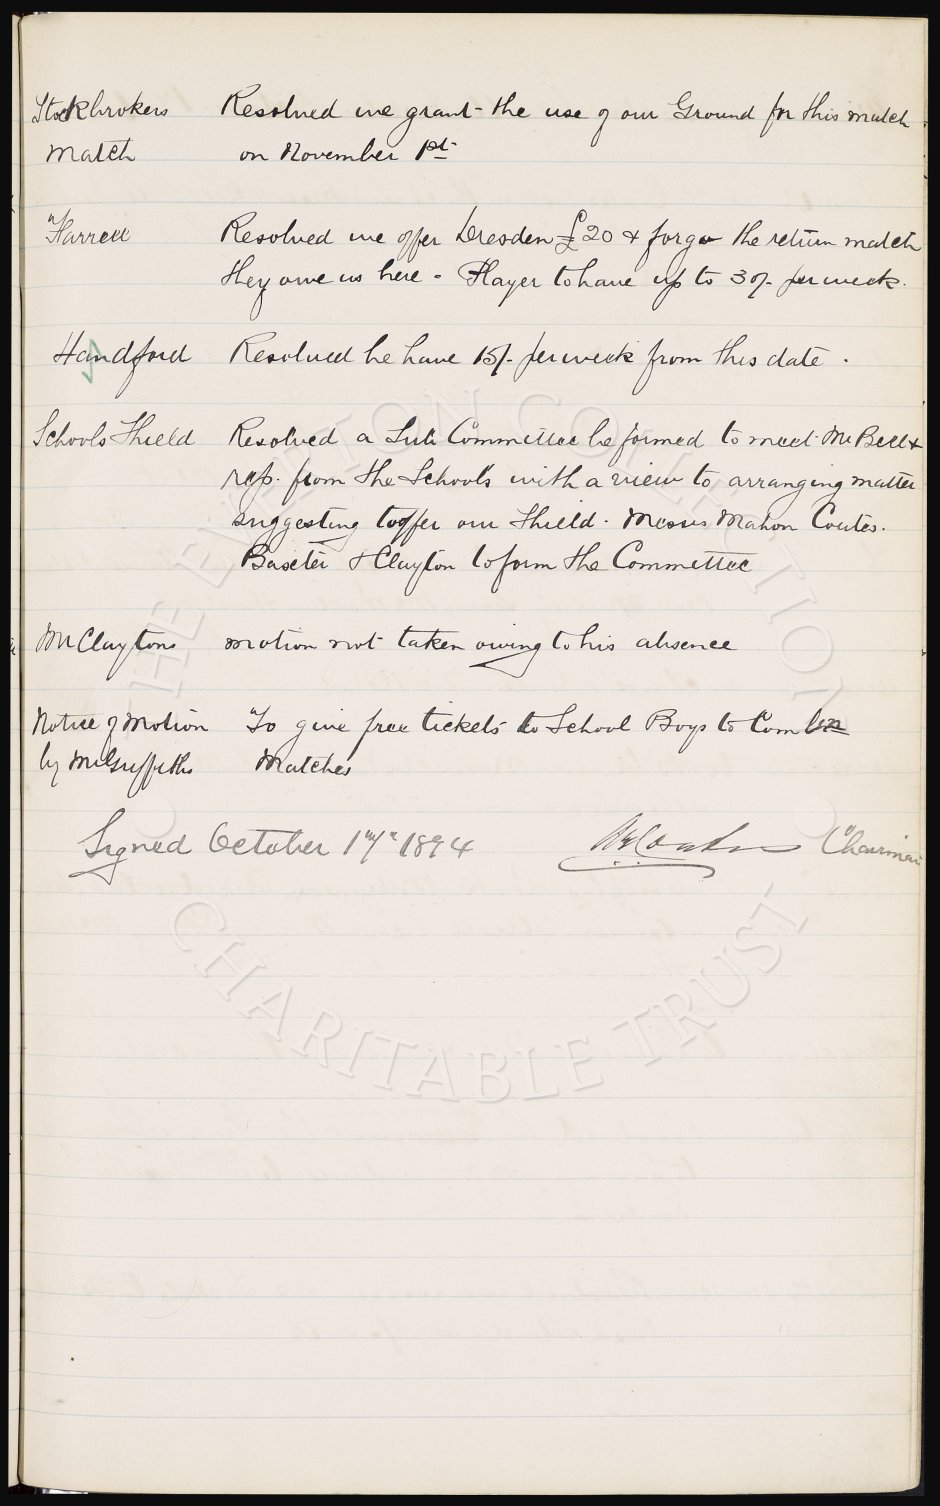 Stockbrokers Resolved we grant the use of our Ground for this match
Match on November 1st
Farrell Resolved we offer Dresden £20 & forgo the return match
they owe us here - Player to have up to 30/- per week.
Handford Resolved he have 15/- per week from this date.
Schools Shield Resolved a Sub Committee be formed to meet Mr Bell &
reps. from the Schools with a view to arranging matter
suggesting to offer our Shield. Messrs Mahon Coates.
Baxter & Clayton to form the Committee
Mr Claytons motion not taken owing to his absence
Notice of Motion To give free tickets to School Boys to Combn
by Mr Griffiths Matches
Signed October 1894 Chairman
THE EVERTON COLLECTION
CHARITABLE TRUST